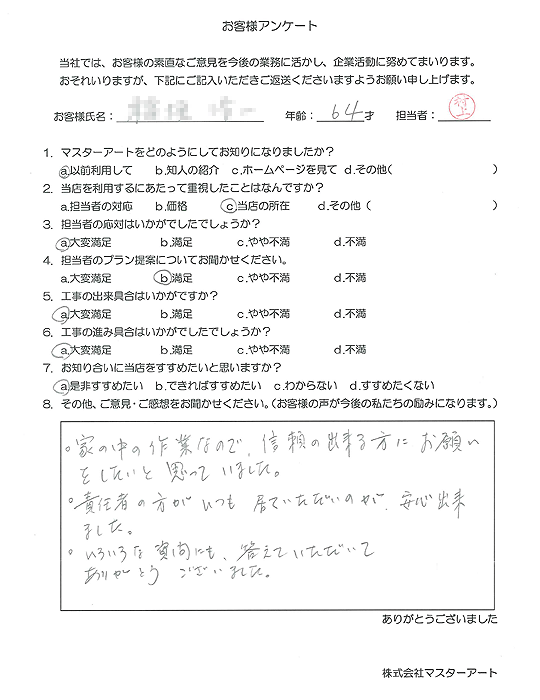 お客様アンケート
当社では、お客様の素直なご意見を今後の業務に活かし、企業活動に努めてまいります。
おそれいりますが、下記にご記入いただきご返送くださいますようお願い申し上げます。
お客様氏名： 年齢： 64 才 担当者： 村上
1. マスターアートをどのようにしてお知りになりましたか？
a.以前利用して b.知人の紹介 c.ホームページを見て d.その他( )
2. 当店を利用するにあたって重視したことはなんですか？
a.担当者の対応 b.価格 c.当店の所在 d.その他 ( )
3. 担当者の応対はいかがでしたでしょうか？
a.大変満足 b.満足 c.やや不満 d.不満
4. 担当者のプラン提案についてお聞かせください。
a.大変満足 b.満足 c.やや不満 d.不満
5. 工事の出来具合はいかがですか？
a.大変満足 b.満足 c.やや不満 d.不満
6. 工事の進み具合はいかがでしたでしょうか？
a.大変満足 b.満足 c.やや不満 d.不満
7. お知り合いに当店をすすめたいと思いますか？
a.是非すすめたい b.できればすすめたい c.わからない d.すすめたくない
8. その他、ご意見・ご感想をお聞かせください。(お客様の声が今後の私たちの励みになります。)
○家の中の作業なので、信頼の出来る方にお願い
をしたいと思っていました。
○責任者の方がいつも居ていただいのが、安心出来
ました。
○いろいろな質問にも、答えていただいて
ありがとうございました。
ありがとうございました
株式会社マスターアート